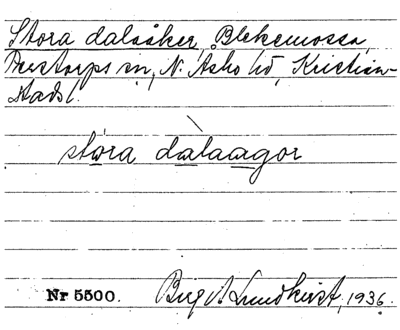 Stora dalaåker, Blekemossa,
Perstorps sn, N. Åsbo hd, Kristian-
stads l.
stora dalaagor
Nr 5500. Birgit Lundkvist, 1936.